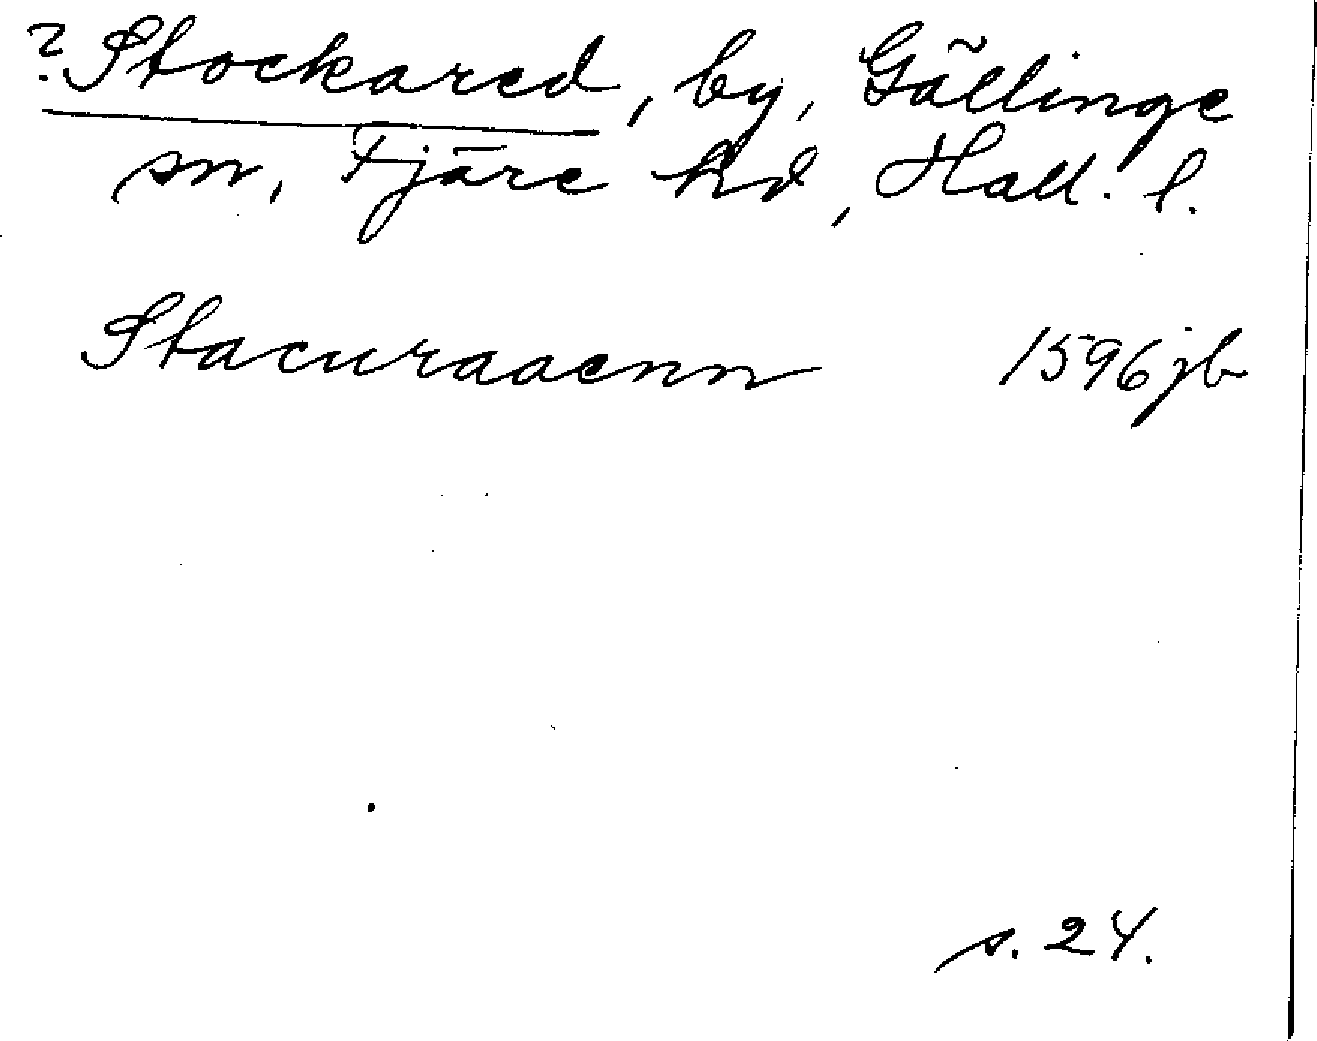 ? Stockared, by, Gällinge
sn, Fjäre hd, Hall. l.
Stacuraaenn 1596 jb
s. 24.